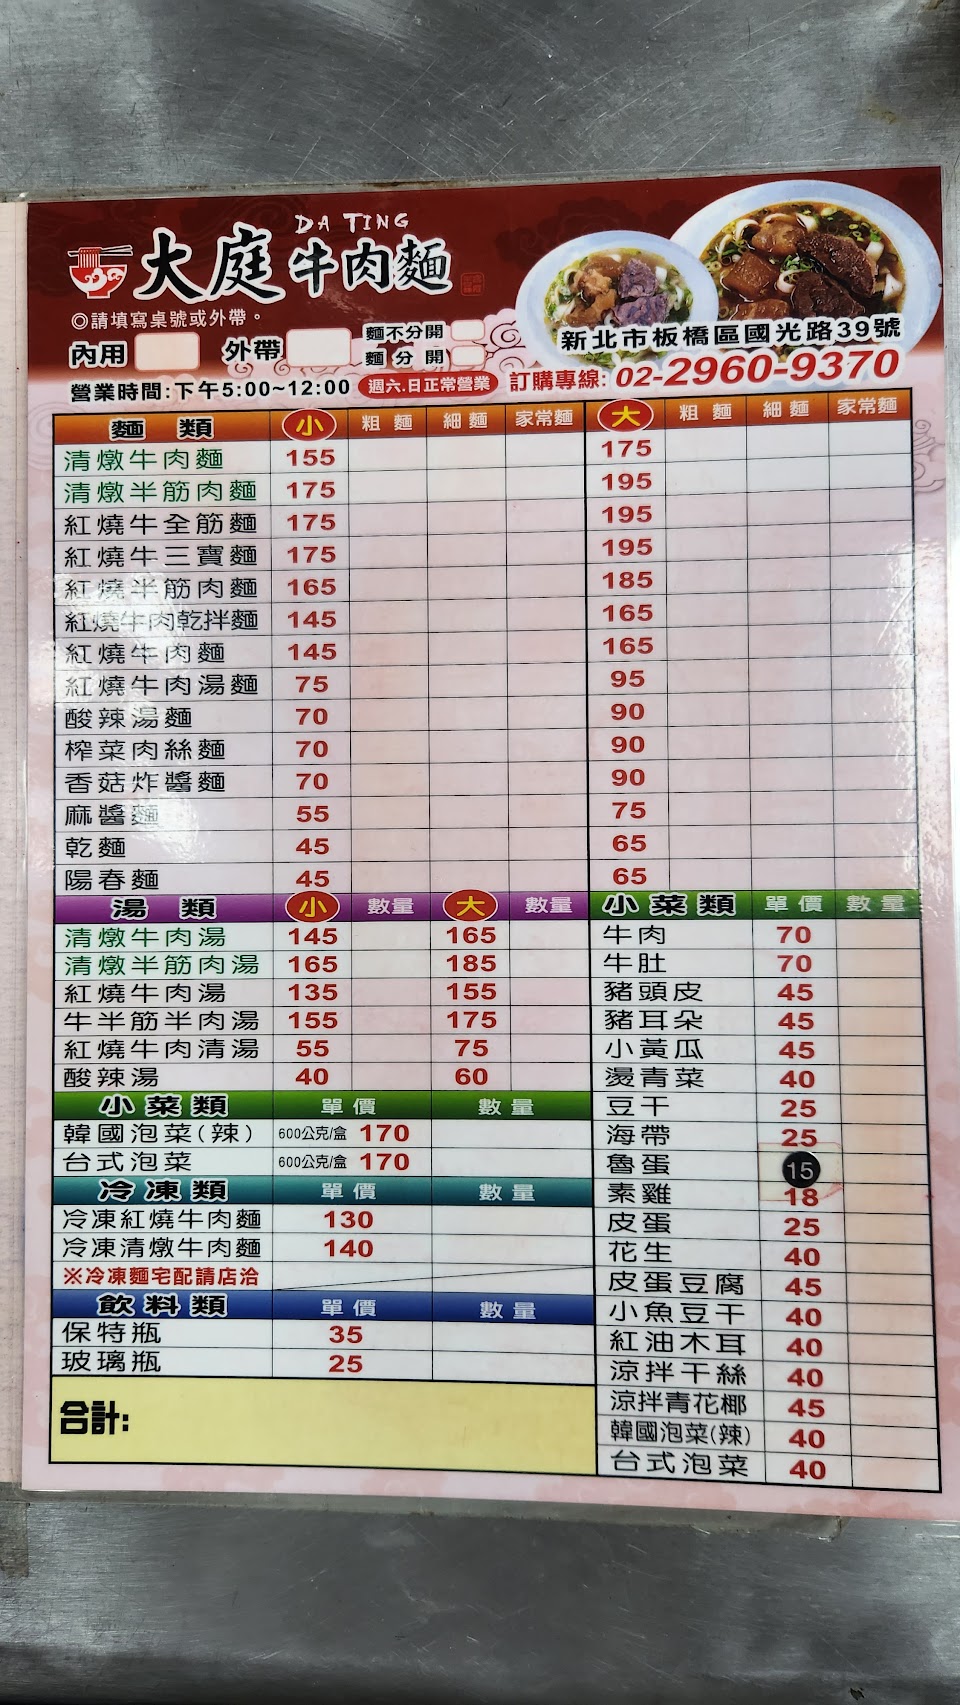 DA TING
大庭牛肉麵
◎請填寫桌號或外帶。
內用 外帶 麵不分開
麵分開
新北市板橋區國光路39號
營業時間:下午5:00~12:00 週六.日正常營業 訂購專線: 02-2960-9370
麵類 小 粗麵 細麵 家常麵 大 粗麵 細麵 家常麵
清燉牛肉麵 155 175
清燉半筋肉麵 175 195
紅燒牛全筋麵 175 195
紅燒牛三寶麵 175 195
紅燒半筋肉麵 165 185
紅燒牛肉乾拌麵 145 165
紅燒牛肉麵 145 165
紅燒牛肉湯麵 75 95
酸辣湯麵 70 90
榨菜肉絲麵 70 90
香菇炸醬麵 70 90
麻醬麵 55 75
乾麵 45 65
陽春麵 45 65
湯類 小 數量 大 數量
清燉牛肉湯 145 165
清燉半筋肉湯 165 185
紅燒牛肉湯 135 155
牛半筋半肉湯 155 175
紅燒牛肉清湯 55 75
酸辣湯 40 60
小菜類 單價 數量
韓國泡菜(辣) 600公克/盒 170
台式泡菜 600公克/盒 170
冷凍類 單價 數量
冷凍紅燒牛肉麵 130
冷凍清燉牛肉麵 140
※冷凍麵宅配請店洽
飲料類 單價 數量
保特瓶 35
玻璃瓶 25
合計:
小菜類 單價 數量
牛肉 70
牛肚 70
豬頭皮 45
豬耳朵 45
小黃瓜 45
燙青菜 40
豆干 25
海帶 25
魯蛋 15
素雞 18
皮蛋 25
花生 40
皮蛋豆腐 45
小魚豆干 40
紅油木耳 40
涼拌干絲 40
涼拌青花椰 45
韓國泡菜(辣) 40
台式泡菜 40